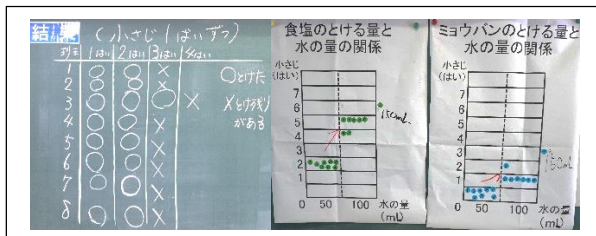 結果 (小さじ1ぱいずつ)
1ぱい 2はい 3ばい 4はい
1 ○ ○ ×
2 ○ ○ ×
3 ○ ○ ○ ×
4 ○ ○ ×
5 ○ ○ ×
6 ○ ○ ×
7 ○ ○ ×
8 ○ ○ ×
○とけた
×とけ残り
がある
食塩のとける量と
水の量の関係
小さじ
(はい)
7
6
5
4
3
2
1
150mL
0 50 100
水の量
(mL)
ミョウバンのとける量と
水の量の関係
小さじ
(はい)
7
6
5
4
3
2
1
150mL
0 50 100
水の量
(mL)